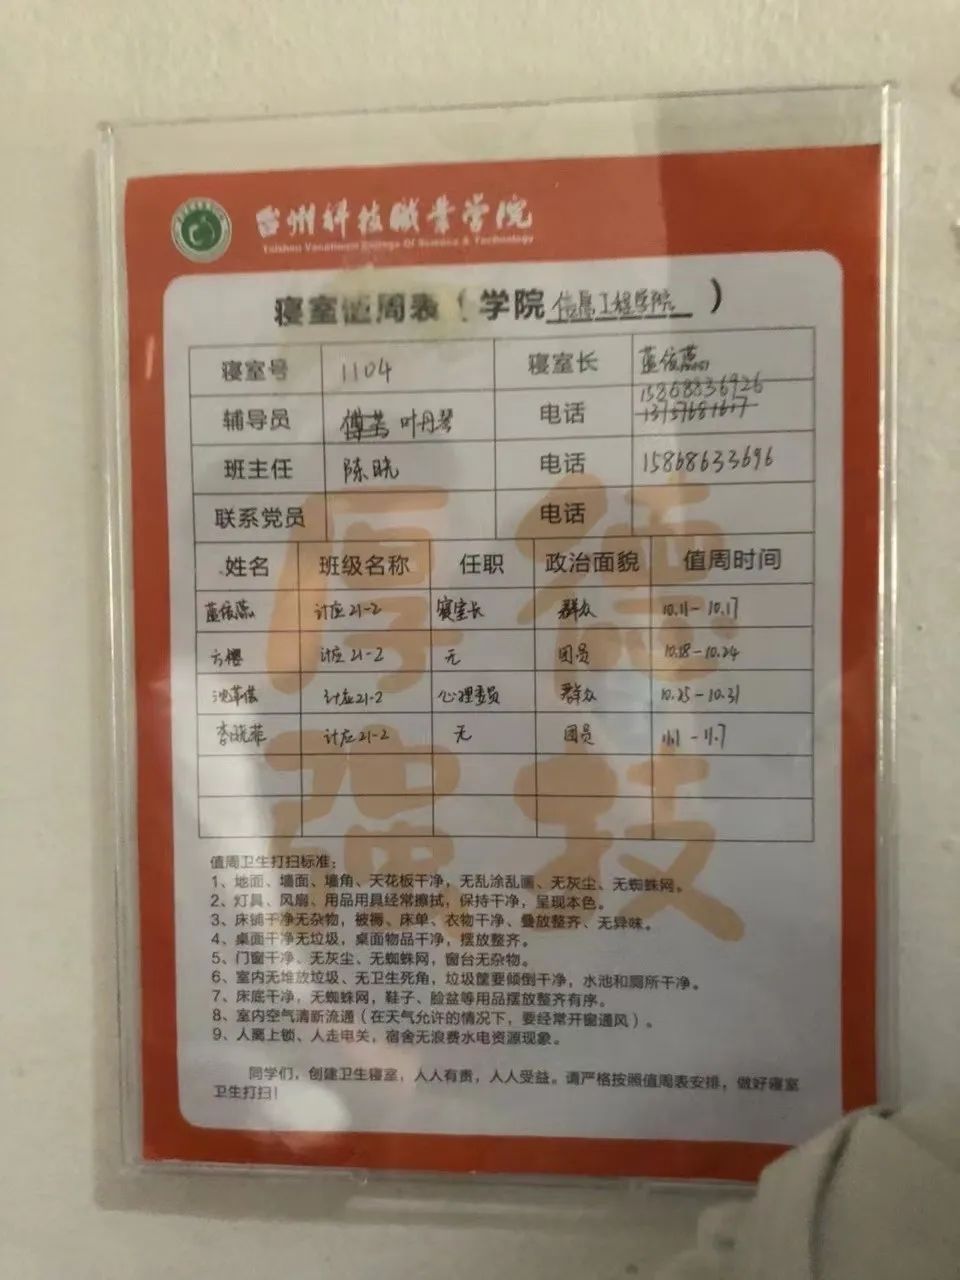 台州科技职业学院
Taizhou Vocational College Of Science & Technology
寝室值周表（学院信息工程学院）
寝室号 1104 寝室长 蓝依蕊
辅导员 叶丹琴 电话 15868836926
班主任 陈晓 电话 15868633696
联系党员 电话
姓名 班级名称 任职 政治面貌 值周时间
蓝依蕊 计应21-2 寝室长 群众 10.11-10.17
方樱 计应21-2 无 团员 10.18-10.24
计应21-2 心理委员 群众 10.25-10.31
李晓菲 计应21-2 无 团员 11.1-11.7
厚德
强技
值周卫生打扫标准：
1、地面、墙面、墙角、天花板干净，无乱涂乱画、无灰尘、无蜘蛛网。
2、灯具、风扇、用品用具经常擦拭，保持干净，呈现本色。
3、床铺干净无杂物，被褥、床单、衣物干净、叠放整齐、无异味。
4、桌面干净无垃圾，桌面物品干净，摆放整齐。
5、门窗干净、无灰尘、无蜘蛛网，窗台无杂物。
6、室内无堆放垃圾、无卫生死角，垃圾筐要倾倒干净，水池和厕所干净。
7、床底干净，无蜘蛛网，鞋子、脸盆等用品摆放整齐有序。
8、室内空气清新流通（在天气允许的情况下，要经常开窗通风）。
9、人离上锁、人走电关，宿舍无浪费水电资源现象。
同学们，创建卫生寝室，人人有责，人人受益。请严格按照值周表安排，做好寝室
卫生打扫！